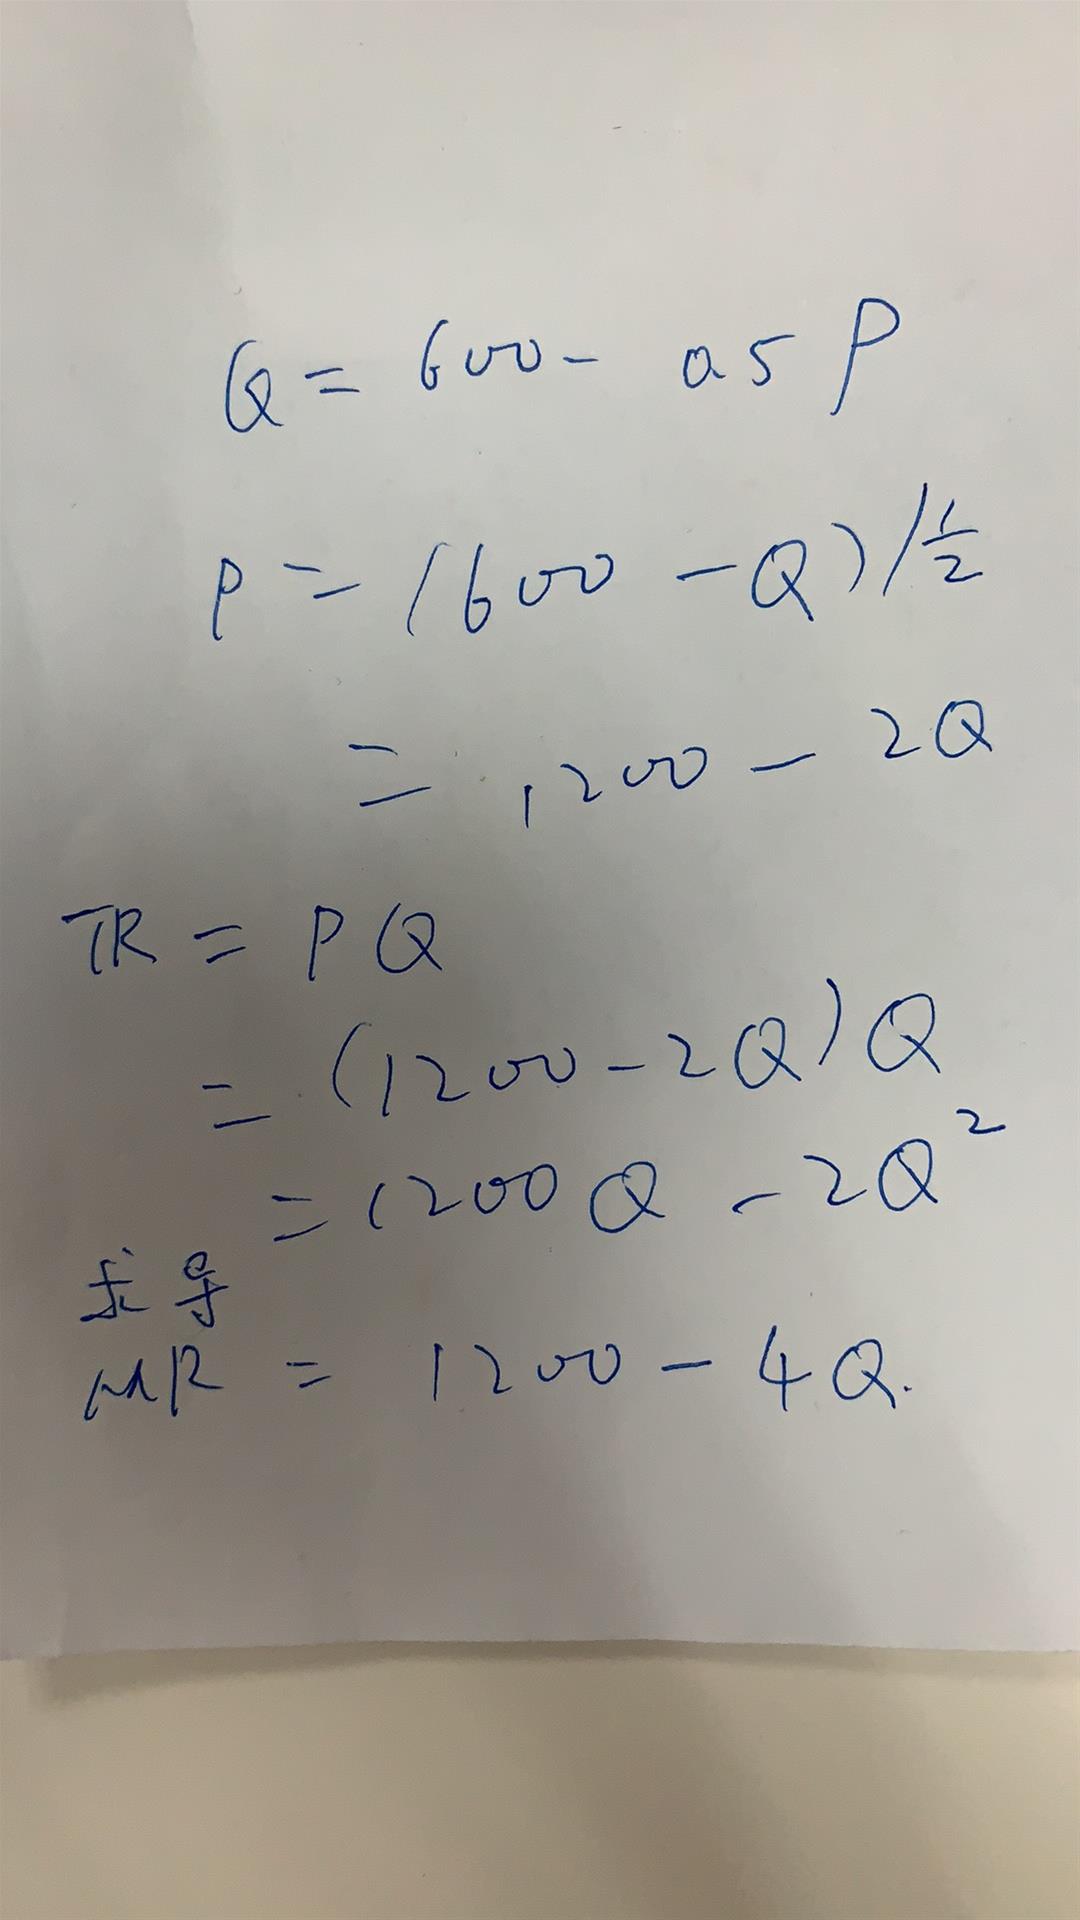 Q = 600 - 0.5 P
P = (600 - Q) / 1/2
= 1200 - 2Q
TR = PQ
= (1200 - 2Q) Q
= 1200 Q - 2Q²
求导
MR = 1200 - 4Q.